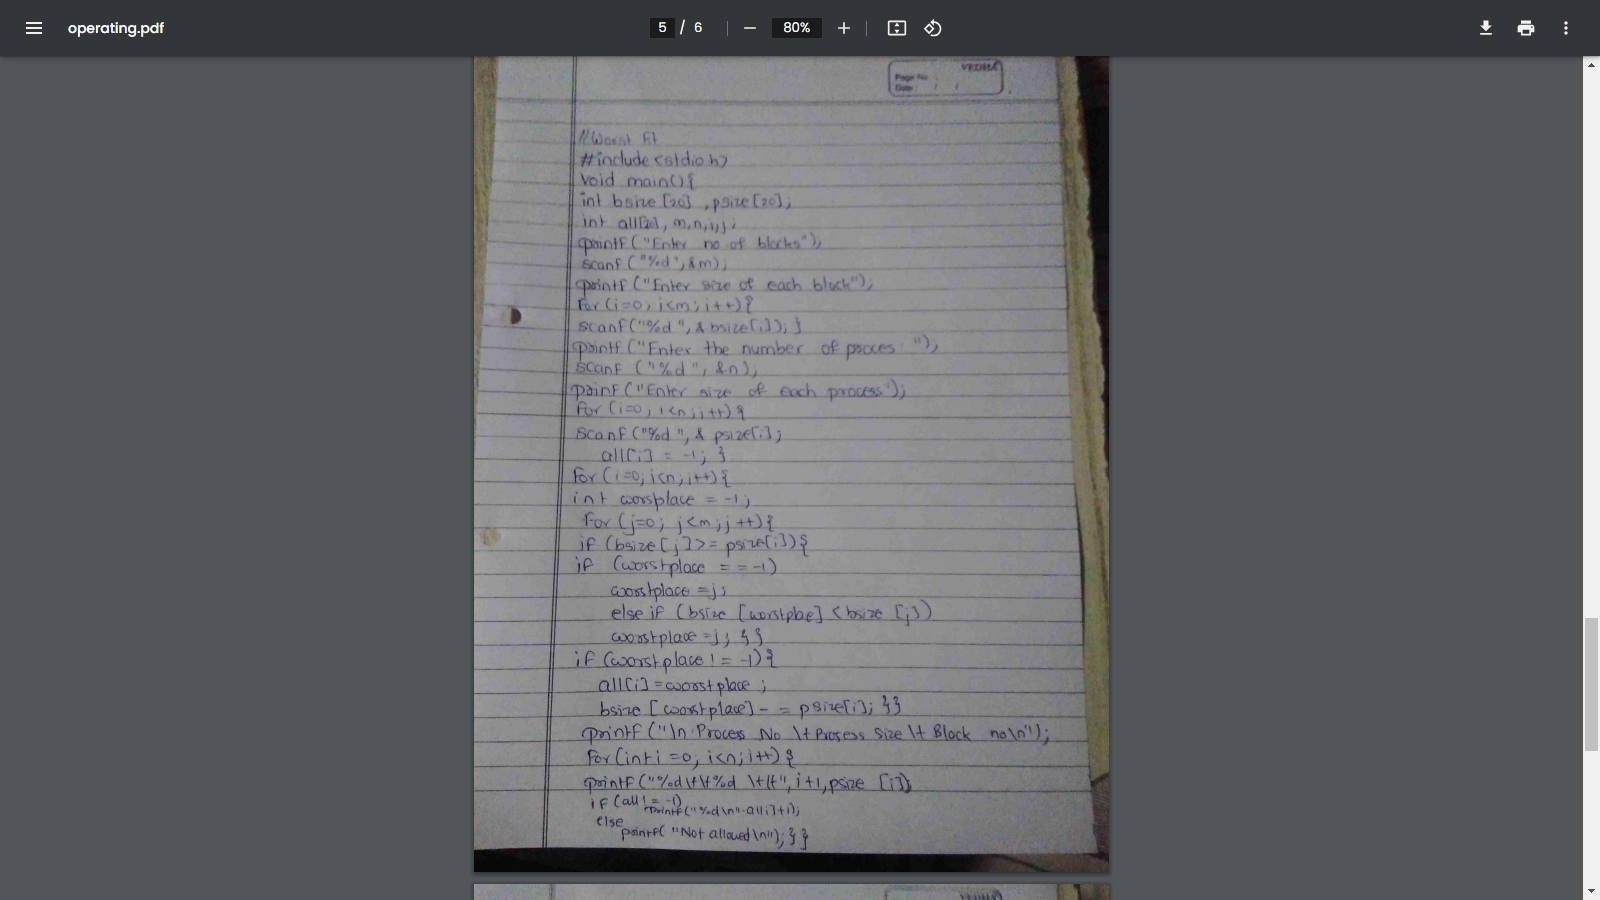 operating.pdf
5 / 6
80%
VEDHA
Page No
Date / /
//Worst fit
#include<stdio.h>
void main(){
int bsize[20] ,psize[20];
int all[20], m,n,i,j;
printf("Enter no of blocks");
scanf("%d",&m);
printf("Enter size of each block");
for(i=0; i<m; i++){
scanf("%d",&bsize[i]); }
printf("Enter the number of proces ");
scanf ("%d", &n);
prinf("Enter size of each process");
for(i=0; i<n;i++){
scanf("%d", & psize[i];
all[i] = -1; }
for(i=0;i<n;i++){
int worsplace = -1;
for(j=0; j<m;j++){
if (bsize[j]>= psize[i]){
if (worstplace = = -1)
worstplace =j;
else if (bsize [worstplce] <bsize [j])
worstplace =j; }}
if (worstplace ! = -1){
all[i] =worstplace ;
bsize [worstplace] - = psize[i]; }}
printf("\n Process No \t Prosess Size \t Block no\n");
for(int i =0; i<n;i++){
printf("%d\t\t%d \t\t", i+1,psize [i]);
if (all ! = -1)
printf("%d\n" all[i]+1);
else
printf( "Not allowed\n"); } }